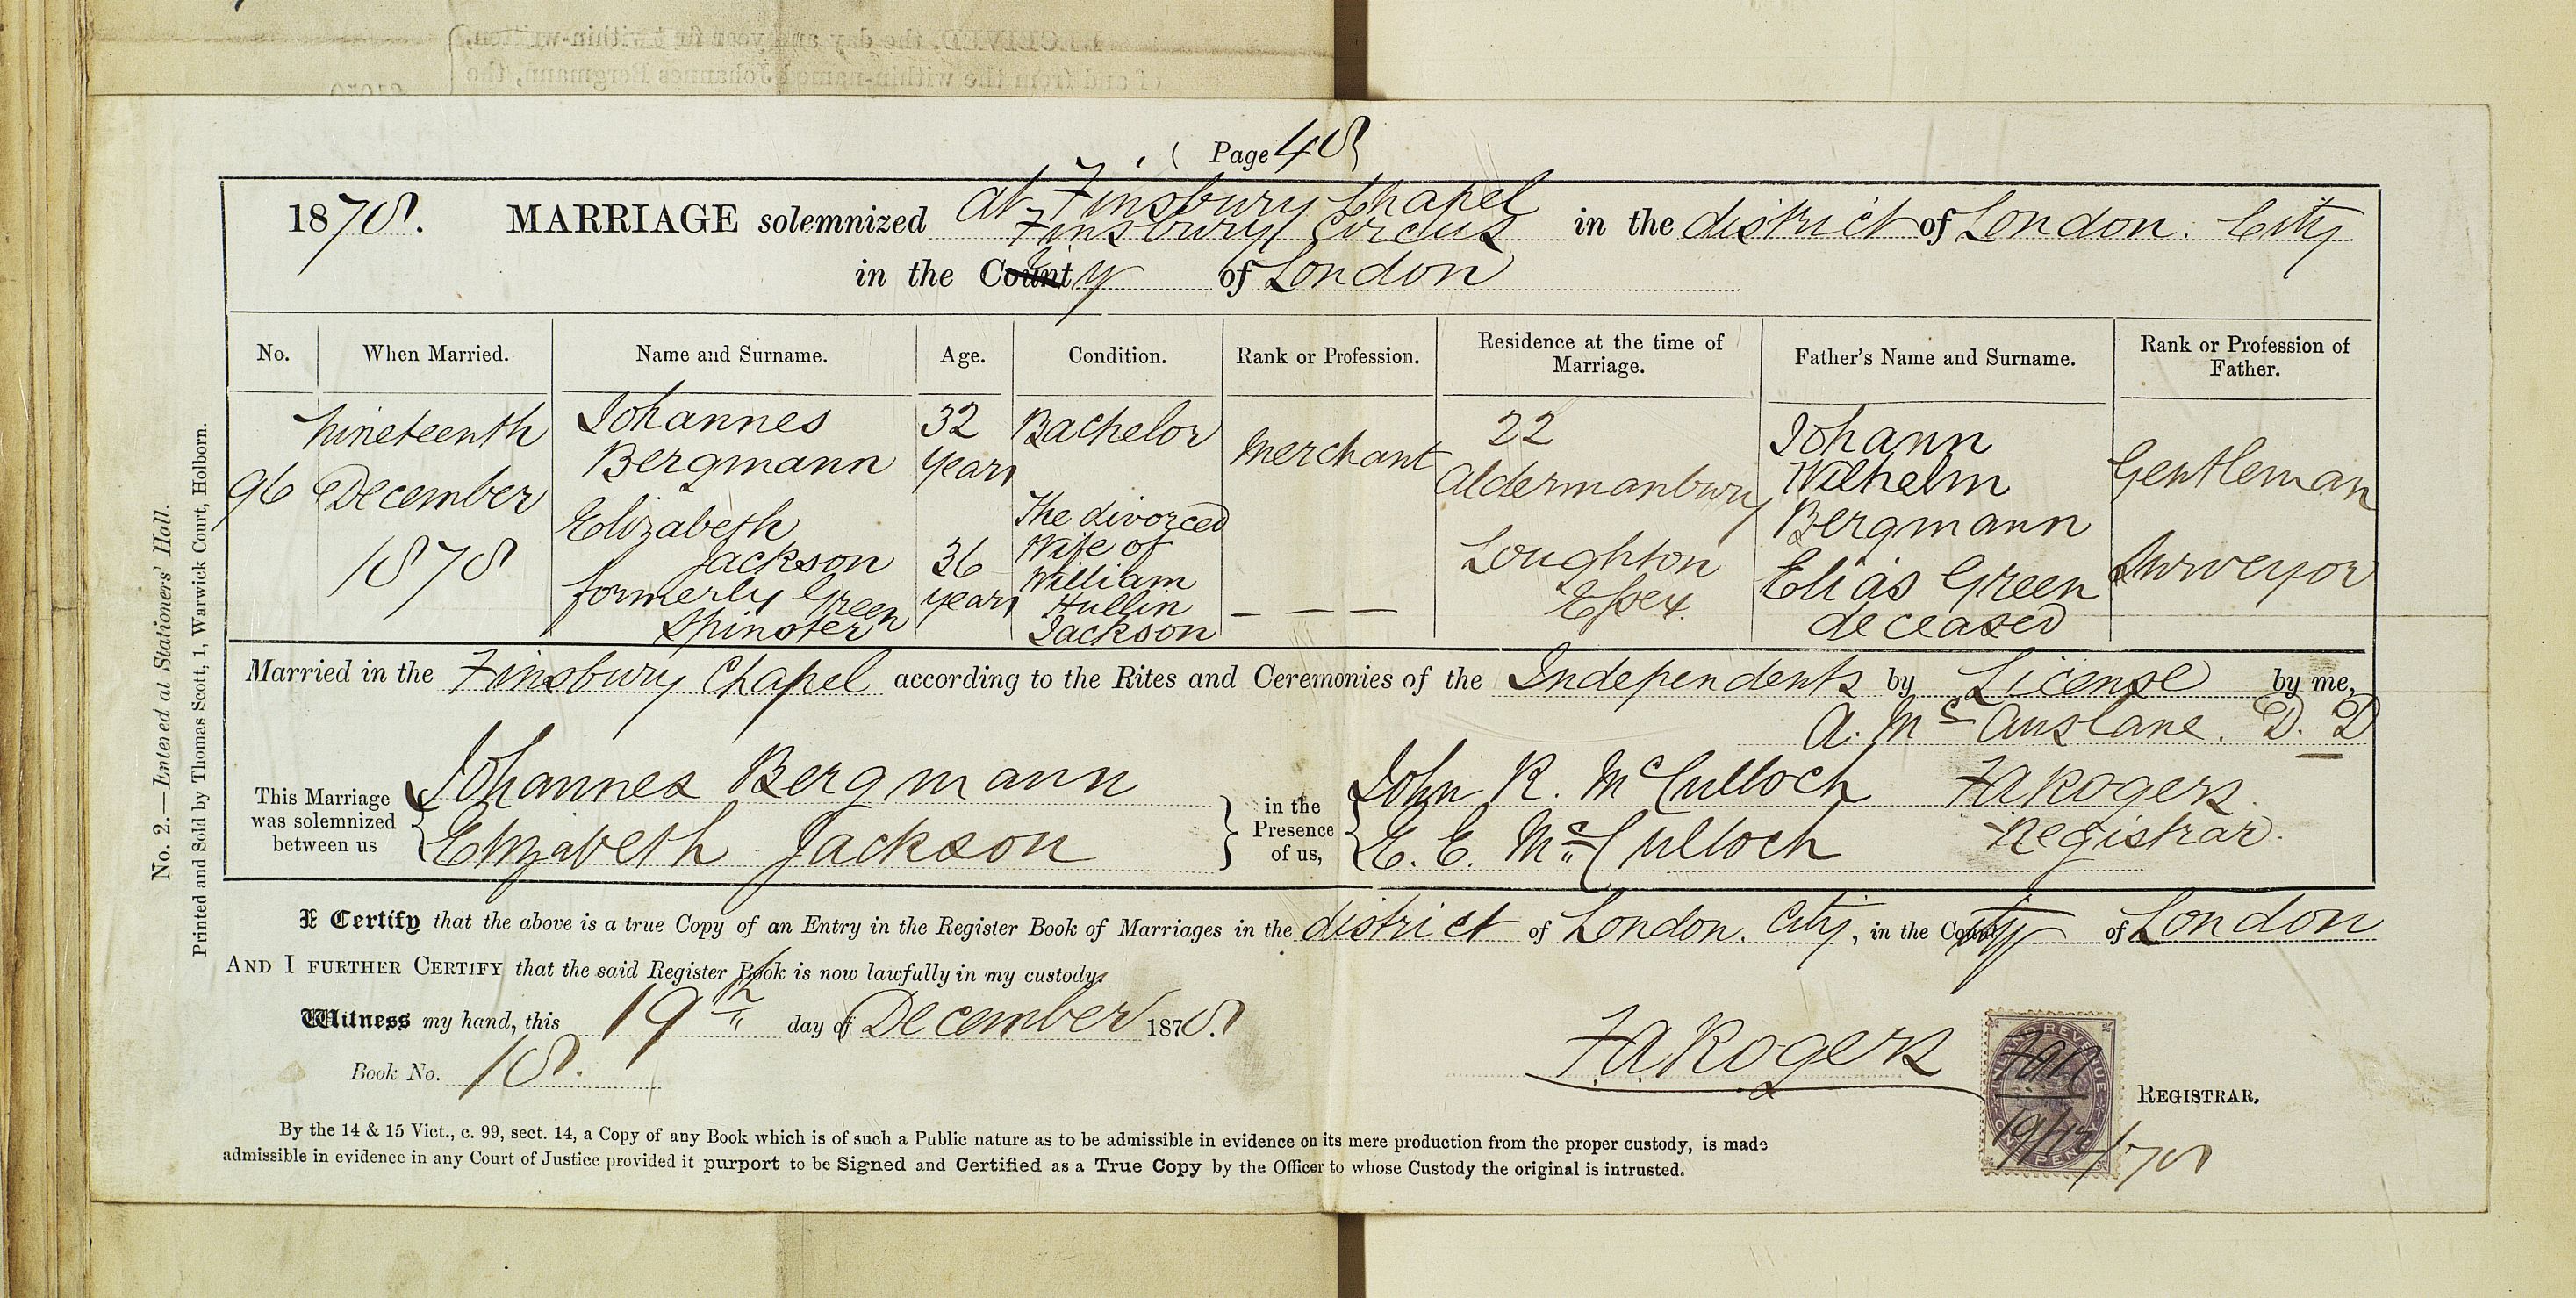 Page 48
1878. MARRIAGE solemnized at Finsbury Chapel
Finsbury Circus in the district of London. City
in the City of London
No. When Married. Name and Surname. Age. Condition. Rank or Profession. Residence at the time of Marriage. Father's Name and Surname. Rank or Profession of Father.
96
Nineteenth
December
1878
Johannes
Bergmann
32
years
Bachelor
Merchant
22
Aldermanbury
Johann
Wilhelm
Bergmann
Gentleman
Elizabeth
Jackson
formerly Green
Spinster
36
years
The divorced
Wife of
William
Hullin
Jackson
— — —
Loughton
Essex.
Elias Green
deceased
Surveyor
Married in the Finsbury Chapel according to the Rites and Ceremonies of the Independents by License by me,
A. Mc Auslane. D. D
This Marriage
was solemnized
between us
Johannes Bergmann
Elizabeth Jackson
in the
Presence
of us,
John R. McCulloch
E. E. McCulloch
FARogers.
Registrar.
I Certify that the above is a true Copy of an Entry in the Register Book of Marriages in the district of London. City, in the City of London
AND I FURTHER CERTIFY that the said Register Book is now lawfully in my custody.
Witness my hand, this 19th day of December 1878.
Book No. 18.
FARogers
REGISTRAR.
INLAND REVENUE
ONE PENNY
FAR
19/12/78
By the 14 & 15 Vict., c. 99, sect. 14, a Copy of any Book which is of such a Public nature as to be admissible in evidence on its mere production from the proper custody, is made
admissible in evidence in any Court of Justice provided it purport to be Signed and Certified as a True Copy by the Officer to whose Custody the original is intrusted.
No. 2.—Entered at Stationers' Hall.
Printed and Sold by Thomas Scott, 1, Warwick Court, Holborn.